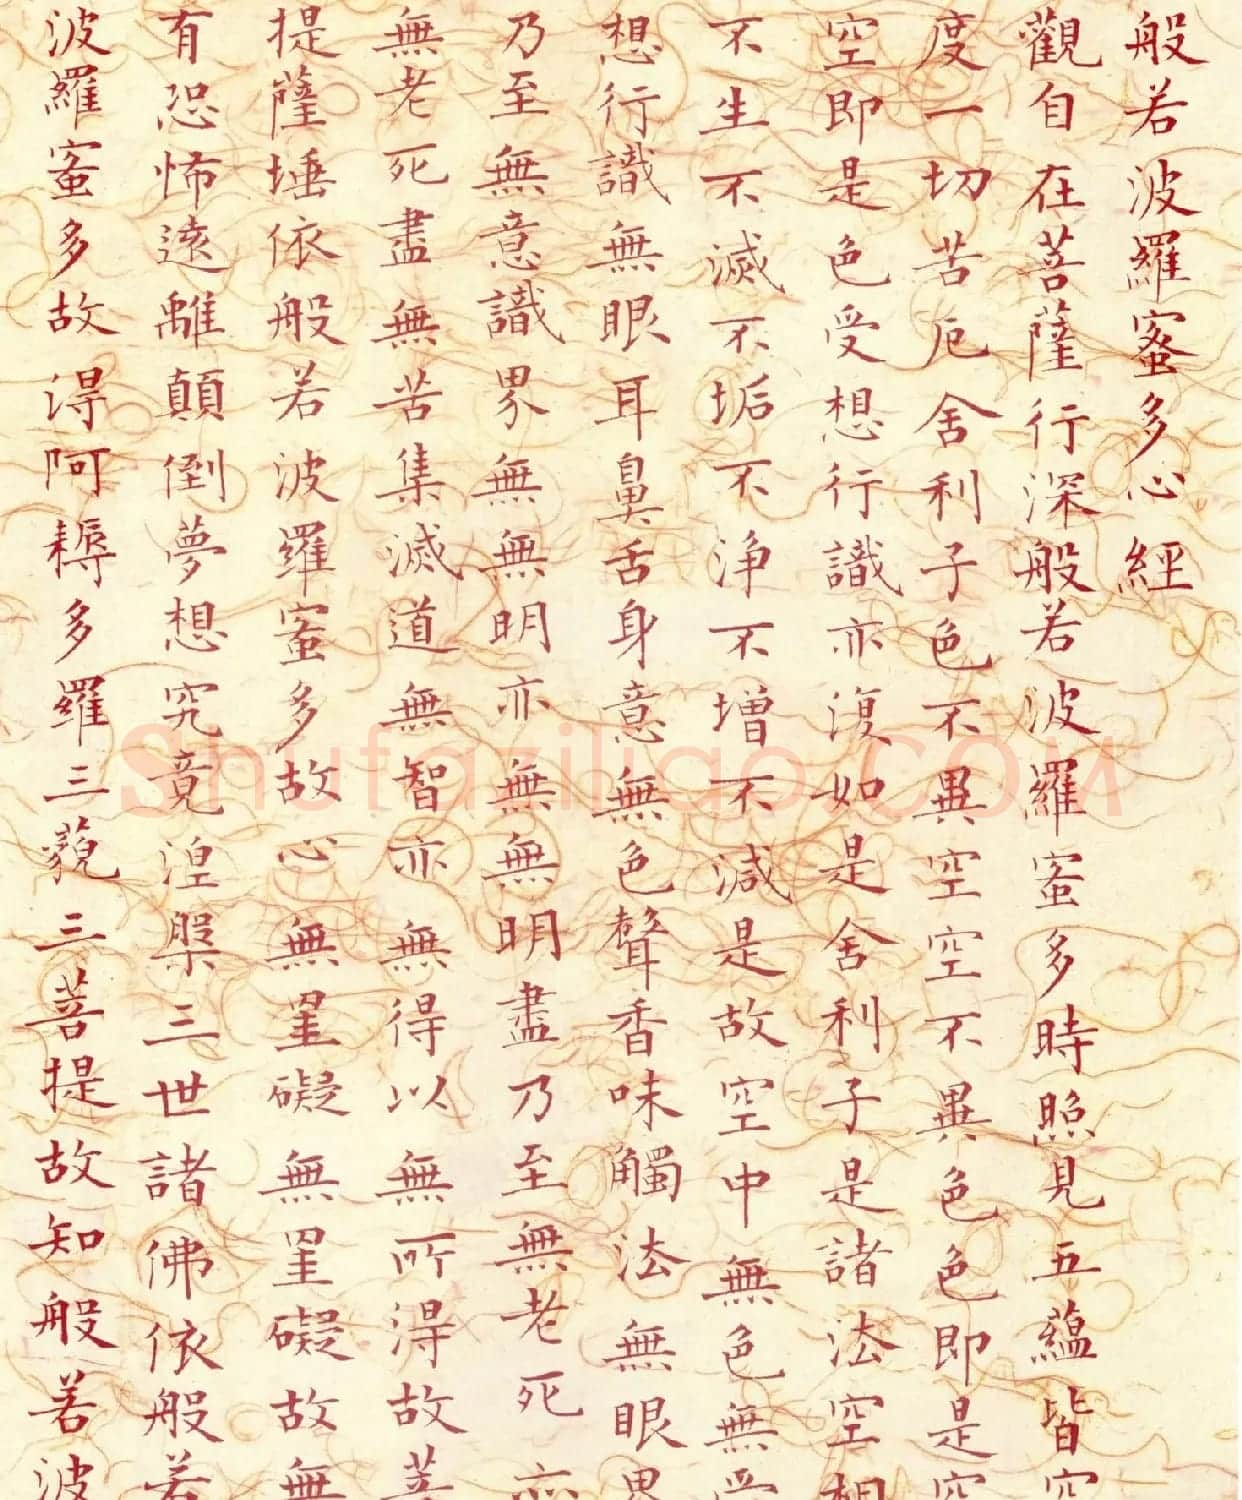 般若波羅蜜多心經
觀自在菩薩行深般若波羅蜜多時照見五蘊皆空
度一切苦厄舍利子色不異空空不異色色即是空
空即是色受想行識亦復如是舍利子是諸法空相
不生不滅不垢不淨不增不減是故空中無色無受
想行識無眼耳鼻舌身意無色聲香味觸法無眼界
乃至無意識界無無明亦無無明盡乃至無老死亦
無老死盡無苦集滅道無智亦無得以無所得故菩
提薩埵依般若波羅蜜多故心無罣礙無罣礙故無
有恐怖遠離顛倒夢想究竟涅槃三世諸佛依般若
波羅蜜多故得阿耨多羅三藐三菩提故知般若波
Shufaziliao.COM